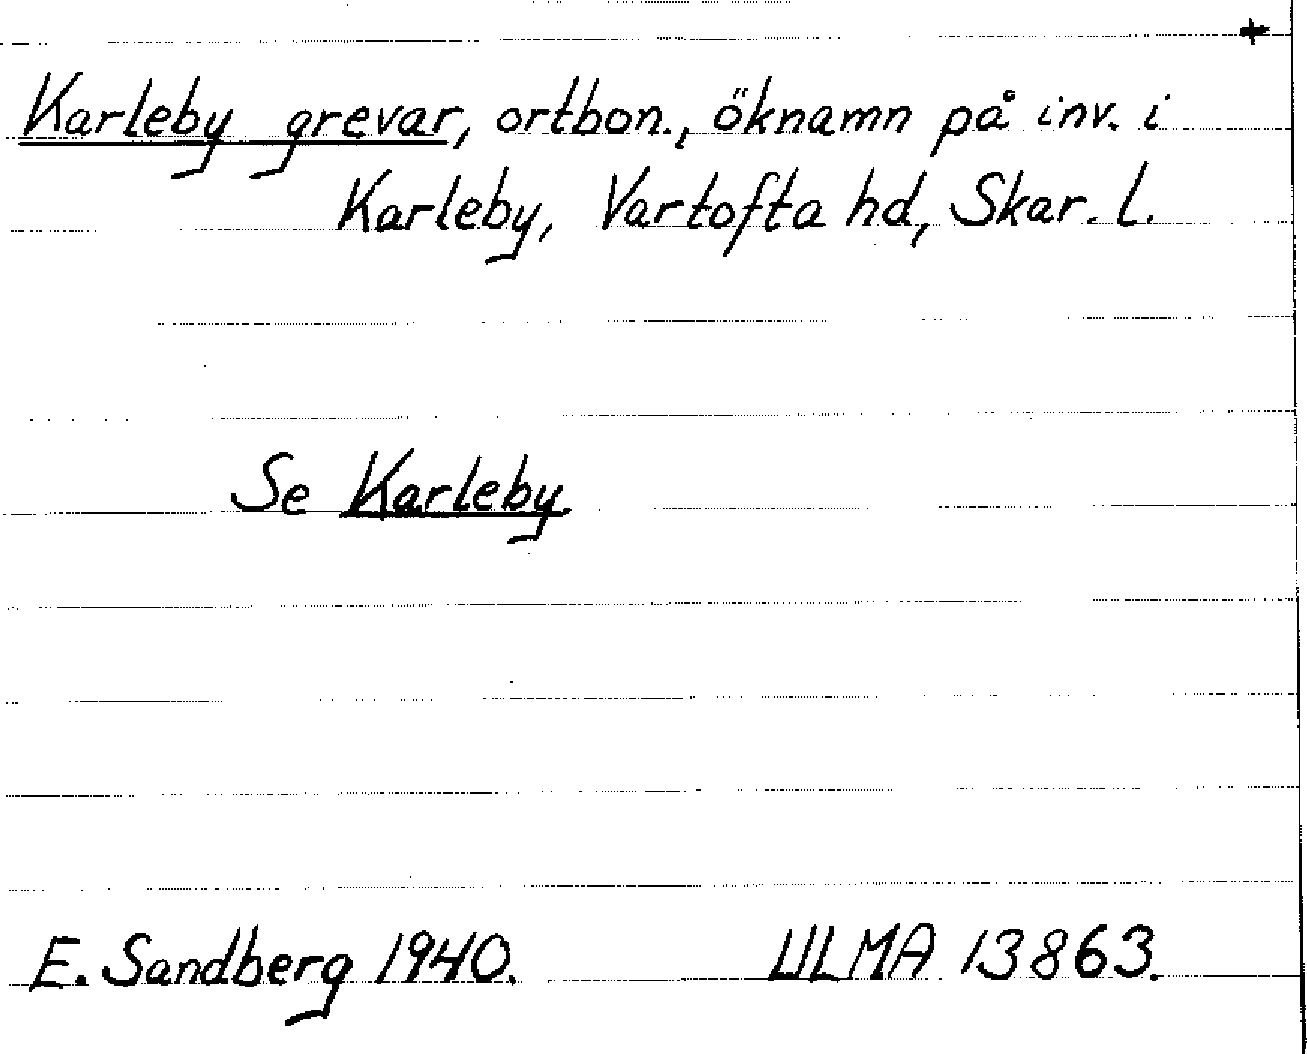 +
Karleby grevar, ortbon., öknamn på inv. i
Karleby, Vartofta hd, Skar. l.
Se Karleby.
E. Sandberg 1940. ULMA 13863.